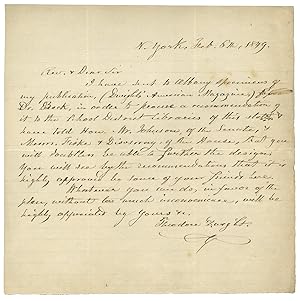 N. York, Feb. 6th, 1849.
Rev. & Dear Sir
I have sent to Albany specimens of
my publication, (Dwight's American Magazine,)
Dr. Beck, in order to procure a recommendation of
it to the School District Libraries of this state. I
have told Hon. Mr. Johnson, of the Senate, &
Messrs. Fiske & of the House, that you
will doubtless be able to further the design.
You will see by the recommendations that it is
highly approved by some of your friends here.
Whatever you can do, in favor of the
plan, without too much inconvenience, will be
highly appreciated by yours &c.
Theodore Dwight.